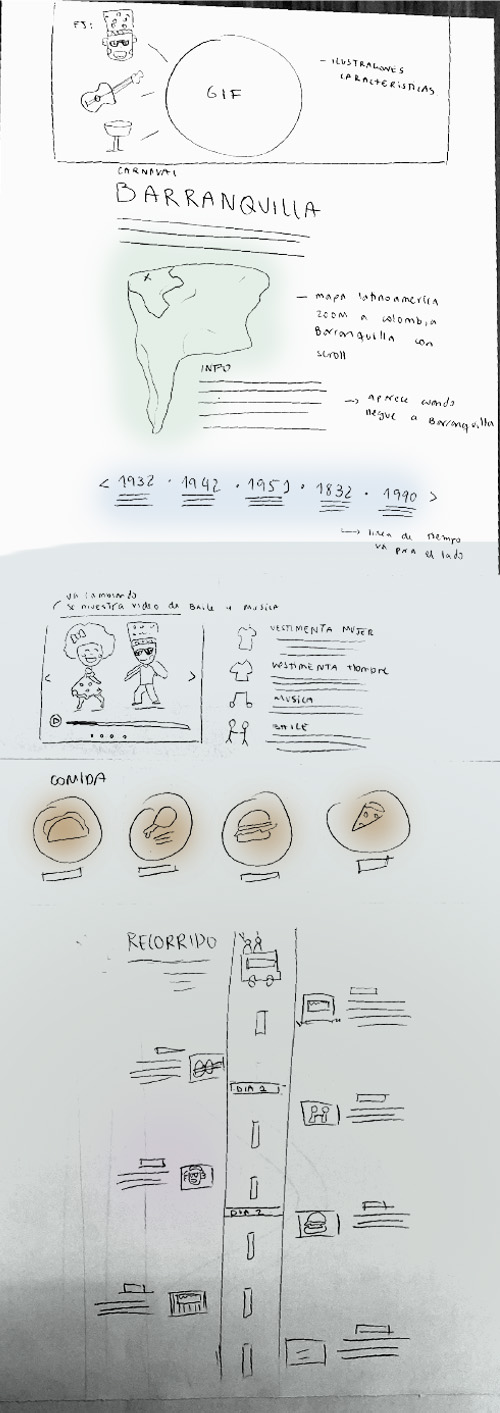 PJ:
GIF
- ILUSTRACIONES
CARACTERISTICAS
CARNAVAL
BARRANQUILLA
- mapa latinoamerica
zoom a colombia
Barranquilla con
scroll
INFO
→ aparece cuando
llegue a Barranquilla
< 1932 · 1942 · 1951 · 1832 · 1990 >
→ linea de tiempo
va para el lado
va cambiando
se muestra video de Baile y Musica
VESTIMENTA MUJER
VESTIMENTA HOMBRE
MUSICA
BAILE
COMIDA
RECORRIDO
DIA 1
DIA 2